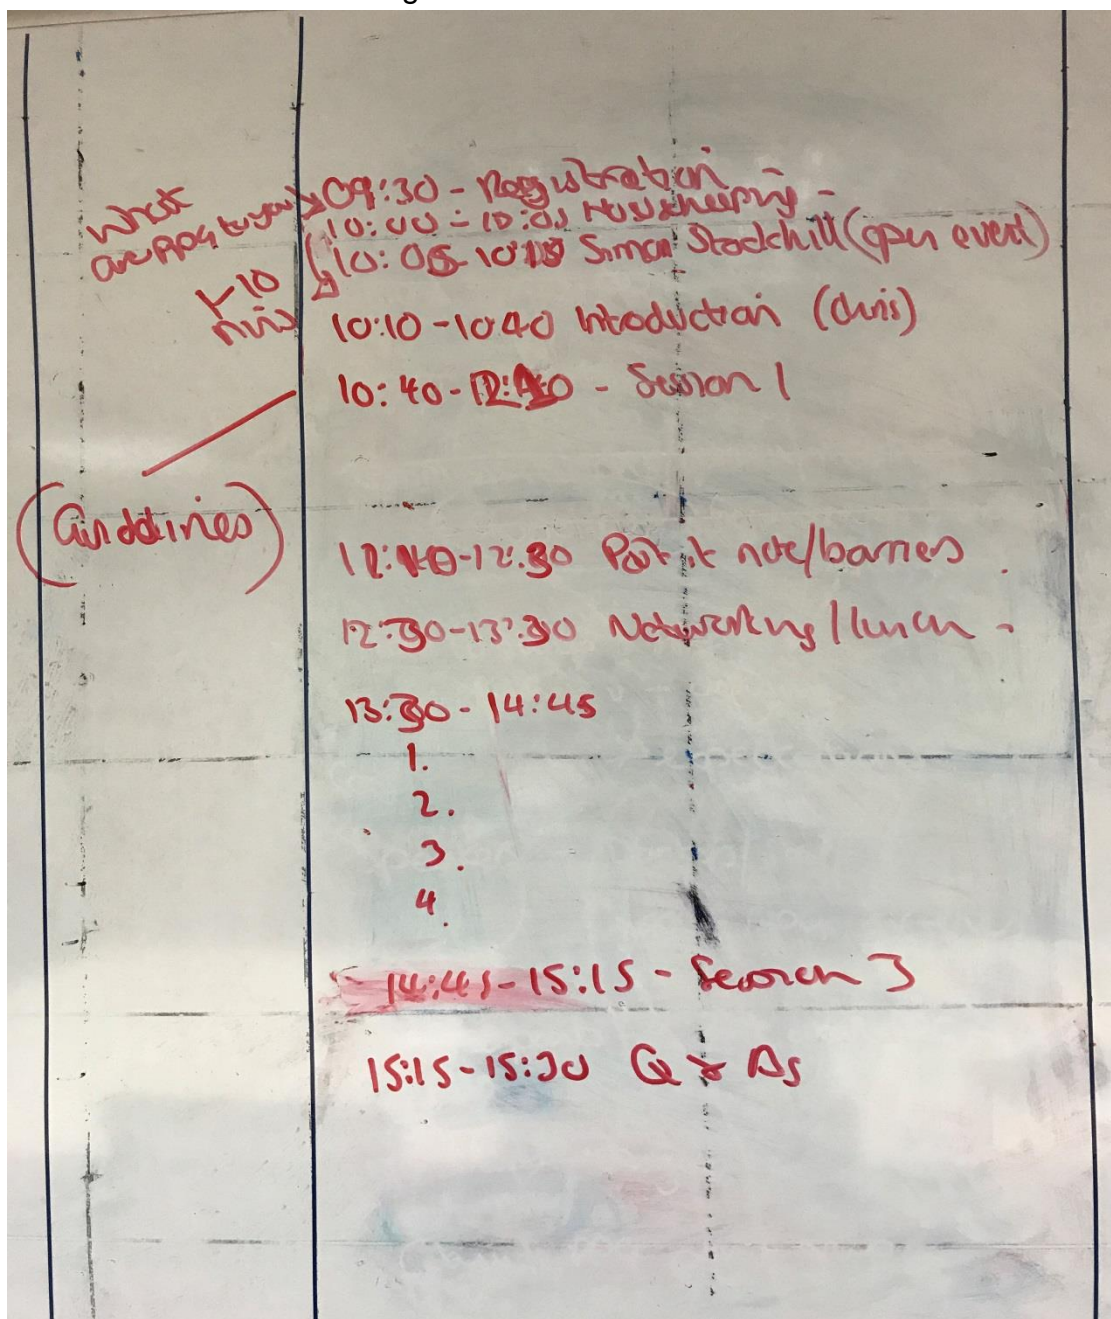 What
are PPGs to you
09:30 - Registration
10:00 - 10:05 Housekeeping -
10:05-10:10 Simon Stockhill (open event)
1-10
mins
10:10-10:40 Introduction (Chris)
10:40- - Session 1
(Guidelines)
12:10-12:30 Post it note/barriers
12:30-13:30 Networking/lunch -
13:30 - 14:45
1.
2.
3.
4.
14:45-15:15 - Session 3
15:15-15:30 Q & As